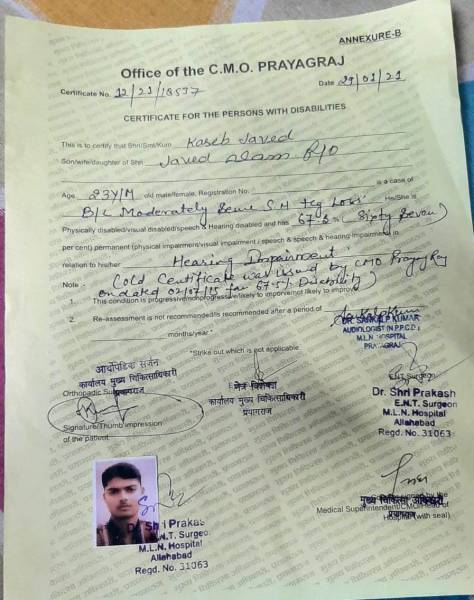 ANNEXURE-B
Office of the C.M.O. PRAYAGRAJ
Certificate No. 12/21/18537 Date 29/01/21
CERTIFICATE FOR THE PERSONS WITH DISABILITIES
This is to certify that Shri/Smt/Kum Kaseb Javed
Son/wife/daughter of Shri Javed Alam R/O
Age 23Y/M old male/female, Registration No. is a case of
B/L Moderately Severe S N Hg Loss. He/She is
Physically disabled/visual disabled/speech & Hearing disabled and has 67.5% (Sixty Seven)
per cent) permanent (physical impairment/visual impairment / speech & speech & hearing impairment) in
relation to his/her Hearing Impairment.
Note : (Old Certificate was issued by CMO Prayag Raj
on dated 02/07/15 for 67.5% Disability)
1. This condition is progressive/nonprogressive/likely to improve/not likely to improve.
2. Re-assessment is not recommended/is recommended after a period of
DR. SANKALP KUMAR
AUDIOLOGIST (N.P.P.C.D.)
M.L.N HOSPITAL
PRAYAGRAJ
months/year.*
*Strike out which is not applicable
आर्थोपेडिक सर्जन
कार्यालय मुख्य चिकित्साधिकारी
प्रयागराज
Orthopadic
नेत्र विशेषज्ञ
कार्यालय मुख्य चिकित्साधिकारी
प्रयागराज
Surgeon
Dr. Shri Prakash
E.N.T. Surgeon
M.L.N. Hospital
Allahabad
Regd. No. 31063
Signature/Thumb impression
of the patient
Shri Prakas
E.N.T. Surgeo
M.L.N. Hospital
Allahabad
Regd. No. 31063
by the
मुख्य चिकित्सा अधिकारी
Medical Superintendent/CMO/Head of
प्रयागराज
Hospital (with seal)